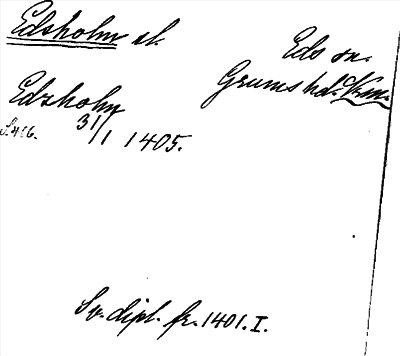 Edsholm sl.
Eds sn.
Grums hd. Vrm.
Edzholm
S. 416. 31/1 1405.
Sv. dipl. fr. 1401. I.